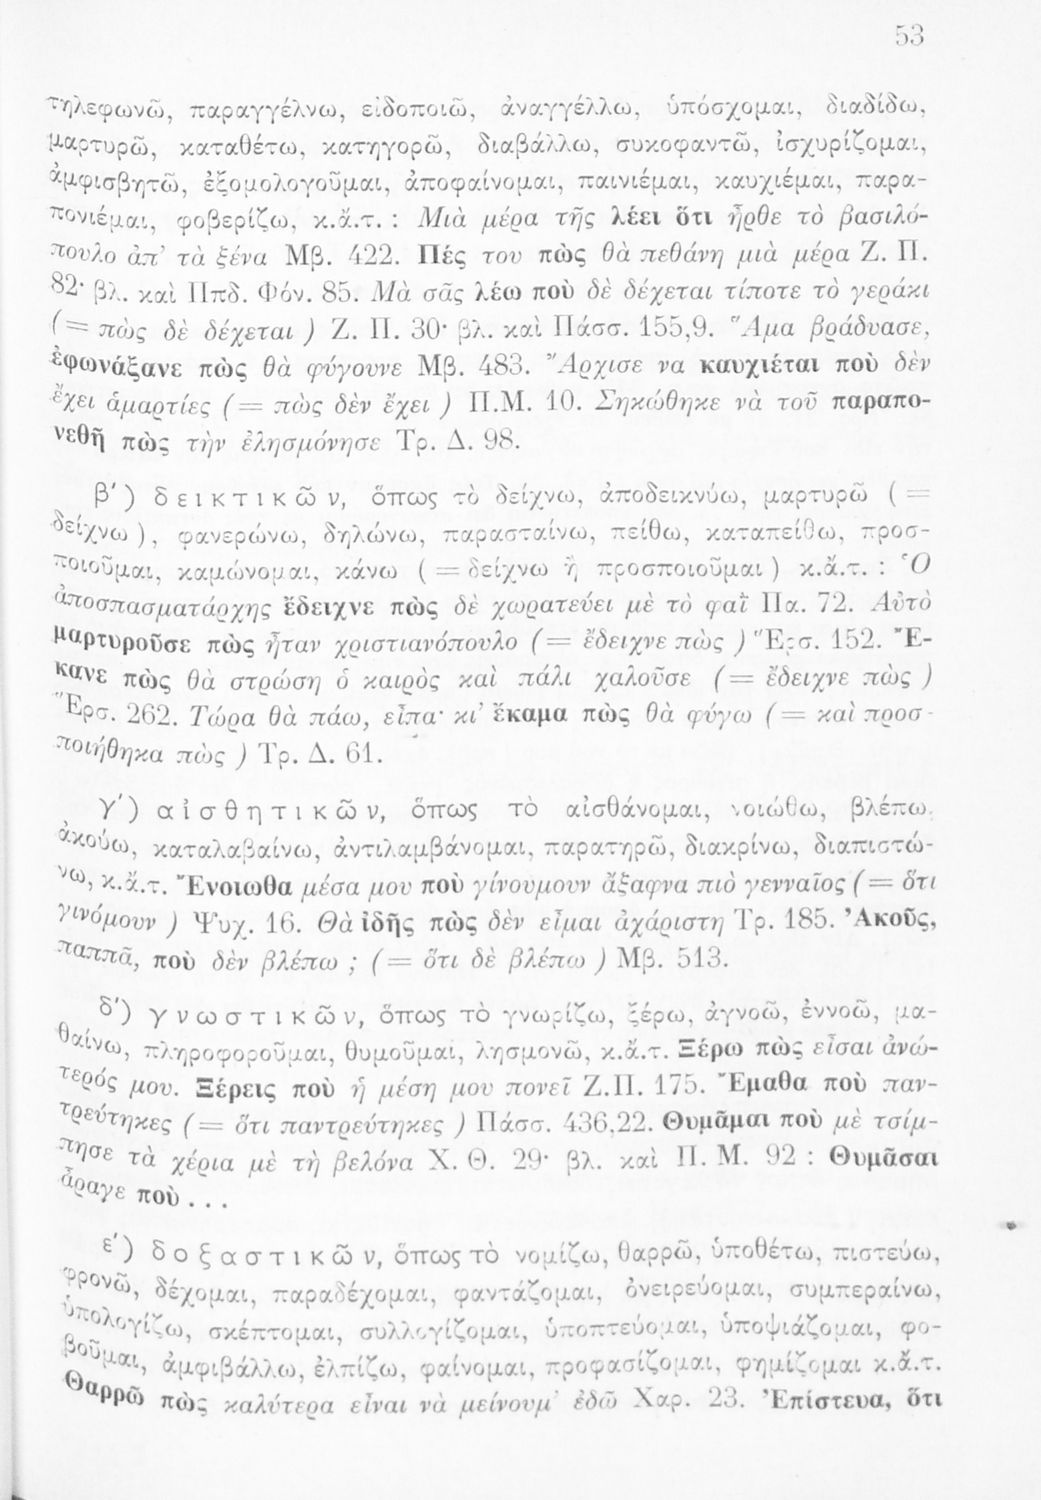 53
τηλεφωνῶ, παραγγέλνω, εἰδοποιῶ, ἀναγγέλλω, ὑπόσχομαι, διαδίδω,
μαρτυρῶ, καταθέτω, κατηγορῶ, διαβάλλω, συκοφαντῶ, ἰσχυρίζομαι,
ἀμφισβητῶ, ἐξομολογοῦμαι, ἀποφαίνομαι, παινιέμαι, καυχιέμαι, παρα-
πονιέμαι, φοβερίζω, κ.ἄ.τ. : Μιὰ μέρα τῆς λέει ὅτι ἦρθε τὸ βασιλό-
πουλο ἀπ’ τὰ ξένα Μβ. 422. Πές του πὼς θὰ πεθάνη μιὰ μέρα Ζ. Π.
82· βλ. καὶ Ππδ. Φόν. 85. Μὰ σᾶς λέω ποὺ δὲ δέχεται τίποτε τὸ γεράκι
(= πὼς δὲ δέχεται ) Ζ. Π. 30· βλ. καὶ Πάσσ. 155,9. Ἅμα βράδυασε,
ἐφωνάξανε πὼς θὰ φύγουνε Μβ. 483. Ἄρχισε να καυχιέται ποὺ δὲν
ἔχει ἁμαρτίες (= πὼς δὲν ἔχει ) Π.Μ. 10. Σηκώθηκε νὰ τοῦ παραπο-
νεθῆ πὼς τὴν ἐλησμόνησε Τρ. Δ. 98.
β΄) δεικτικῶν, ὅπως τὸ δείχνω, ἀποδεικνύω, μαρτυρῶ ( =
δείχνω ), φανερώνω, δηλώνω, παρασταίνω, πείθω, καταπείθω, προσ-
ποιοῦμαι, καμώνομαι, κάνω ( = δείχνω ἢ προσποιοῦμαι ) κ.ἄ.τ. : Ὁ
ἀποσπασματάρχης ἔδειχνε πὼς δὲ χωρατεύει μὲ τὸ φαῒ Πα. 72. Αὐτὸ
μαρτυροῦσε πὼς ἦταν χριστιανόπουλο (= ἔδειχνε πὼς ) Ἔρσ. 152. Ἔ-
κανε πὼς θὰ στρώση ὁ καιρὸς καὶ πάλι χαλοῦσε (= ἔδειχνε πὼς )
Ἔρσ. 262. Τώρα θὰ πάω, εἶπα· κι’ ἔκαμα πὼς θὰ φύγω (= καὶ προσ-
ποιήθηκα πὼς ) Τρ. Δ. 61.
γ΄) αἰσθητικῶν, ὅπως τὸ αἰσθάνομαι, νοιώθω, βλέπω,
ἀκούω, καταλαβαίνω, ἀντιλαμβάνομαι, παρατηρῶ, διακρίνω, διαπιστώ-
νω, κ.ἄ.τ. Ἔνοιωθα μέσα μου ποὺ γίνουμουν ἄξαφνα πιὸ γενναῖος (= ὅτι
γινόμουν ) Ψυχ. 16. Θὰ ἰδῆς πὼς δὲν εἶμαι ἀχάριστη Τρ. 185. Ἀκοῦς,
παππᾶ, ποὺ δὲν βλέπω ; (= ὅτι δὲ βλέπω ) Μβ. 513.
δ΄) γνωστικῶν, ὅπως τὸ γνωρίζω, ξέρω, ἀγνοῶ, ἐννοῶ, μα-
θαίνω, πληροφοροῦμαι, θυμοῦμαι, λησμονῶ, κ.ἄ.τ. Ξέρω πὼς εἶσαι ἀνώ-
τερός μου. Ξέρεις ποὺ ἡ μέση μου πονεῖ Ζ.Π. 175. Ἔμαθα ποὺ παν-
τρεύτηκες (= ὅτι παντρεύτηκες ) Πάσσ. 436,22. Θυμᾶμαι ποὺ μὲ τσίμ-
πησε τὰ χέρια μὲ τὴ βελόνα Χ. Θ. 29· βλ. καὶ Π. Μ. 92 : Θυμᾶσαι
ἆραγε ποὺ . . .
ε΄) δοξαστικῶν, ὅπως τὸ νομίζω, θαρρῶ, ὑποθέτω, πιστεύω,
φρονῶ, δέχομαι, παραδέχομαι, φαντάζομαι, ὀνειρεύομαι, συμπεραίνω,
ὑπολογίζω, σκέπτομαι, συλλογίζομαι, ὑποπτεύομαι, ὑποψιάζομαι, φο-
βοῦμαι, ἀμφιβάλλω, ἐλπίζω, φαίνομαι, προφασίζομαι, φημίζομαι κ.ἄ.τ.
Θαρρῶ πὼς καλύτερα εἶναι νὰ μείνουμ’ ἐδῶ Χαρ. 23. Ἐπίστευα, ὅτι